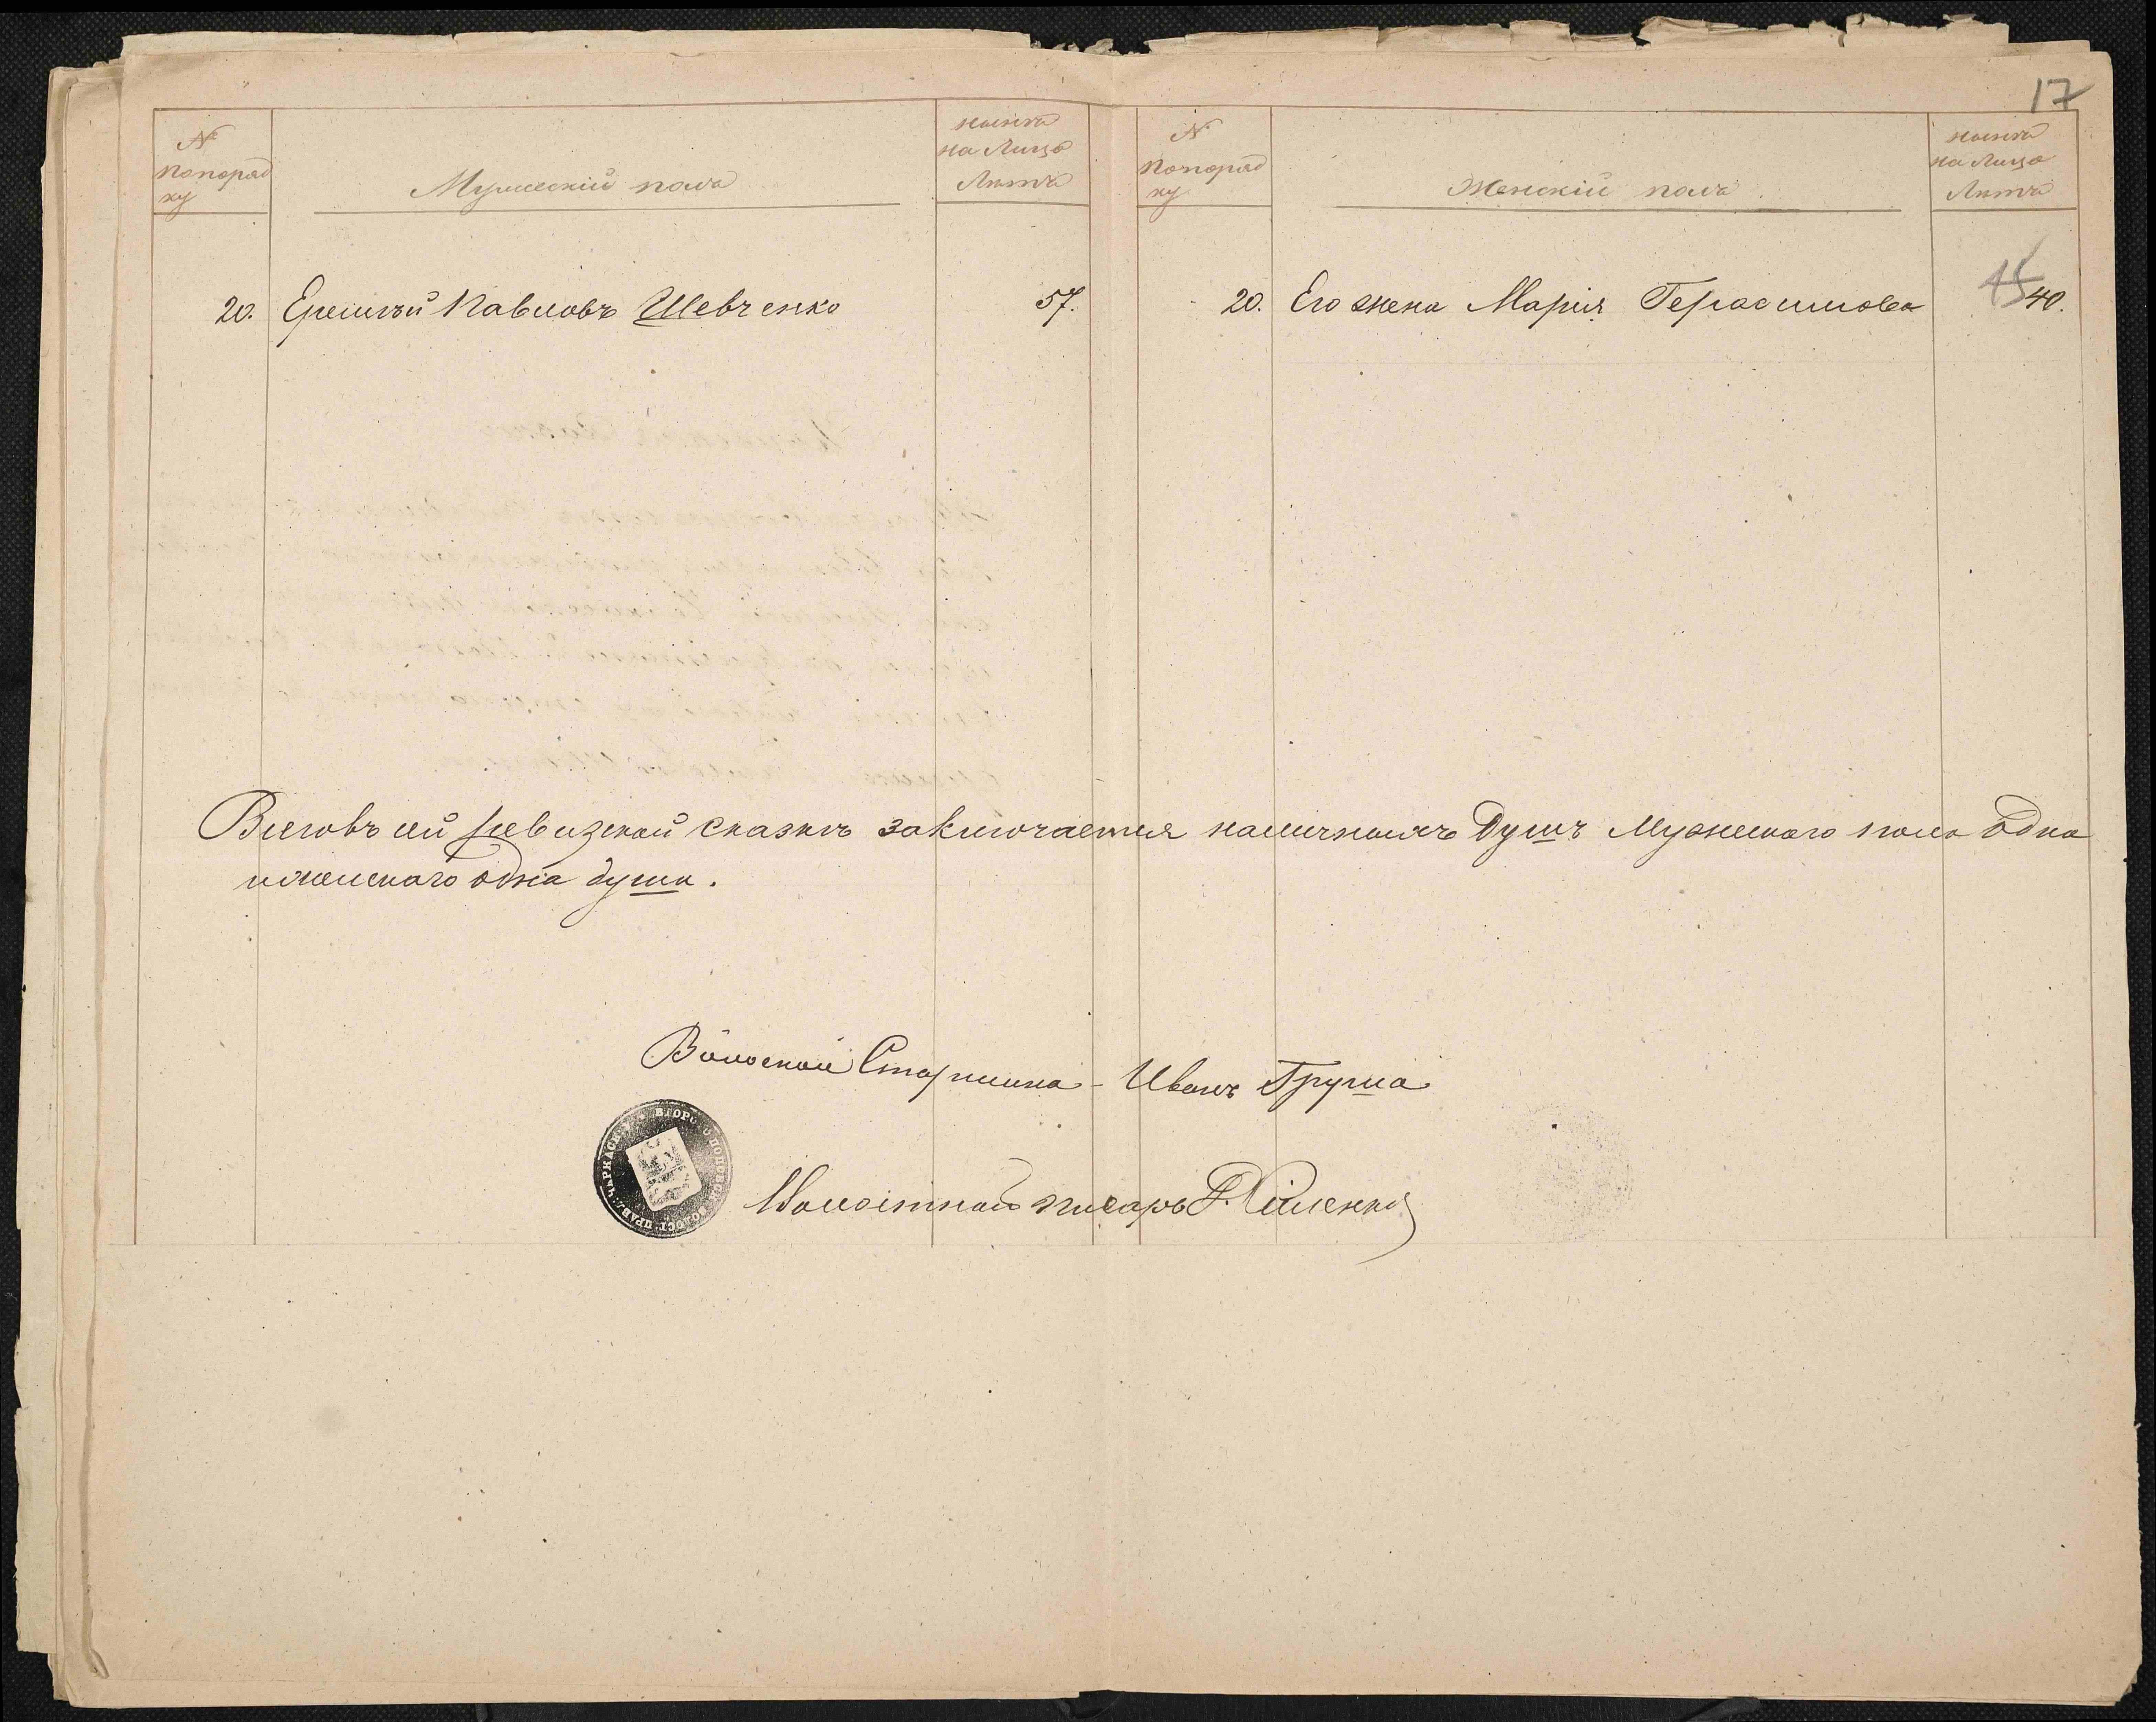 17
№ попоряд ку
Мужескій полъ
ныне на Лицо Лѣта
№ попоряд ку
Женскій полъ
ныне на Лицо Лѣта
20. Еремѣй Павловъ Шевченко 57.
20. Его жена Марія Герасимова 45 40.
Всего въ сей ревизской сказкѣ заключается наличныхъ душъ Мужескаго пола одна
и женскаго одна душа.
Волосной Старшина - Иванъ Груша
Волостной писарь